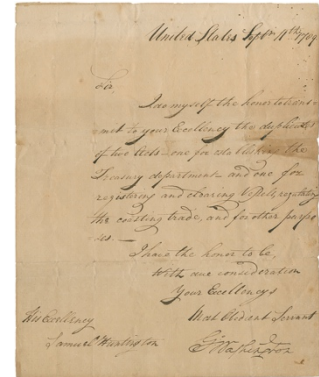 United States Sepr. 11th 1789
Sir,
I do myself the honor to trans-
mit to your Excellency the duplicates
of two Acts—one for establishing the
Treasury department—and one for
registering and clearing Vessels, regulating
the coasting trade, and for other purpo-
ses.—
I have the honor to be,
With due consideration
Your Excellency's
Most Obedient Servant
Go: Washington
His Excellency
Samuel Huntington